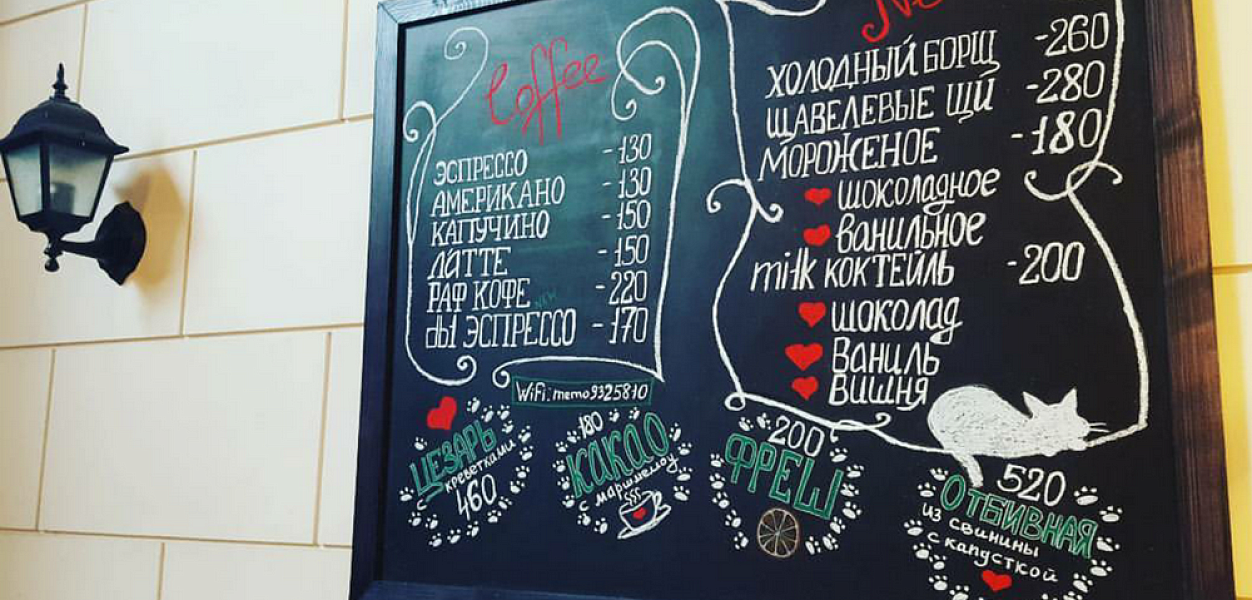 Coffee
ЭСПРЕССО -130
АМЕРИКАНО -130
КАПУЧИНО -150
ЛАТТЕ -150
РАФ КОФЕ NEW -220
dbl ЭСПРЕССО -170
WiFi: memo9325810
ЦЕЗАРЬ
с креветками
460
180
КАКАО
с маршмеллоу
ХОЛОДНЫЙ БОРЩ -260
ЩАВЕЛЕВЫЕ ЩИ -280
МОРОЖЕНОЕ -180
ШОКОЛАДНОЕ
ВАНИЛЬНОЕ
milk КОКТЕЙЛЬ -200
ШОКОЛАД
ВАНИЛЬ
ВИШНЯ
200
ФРЕШ
520
ОТБИВНАЯ
из свинины
с капусткой